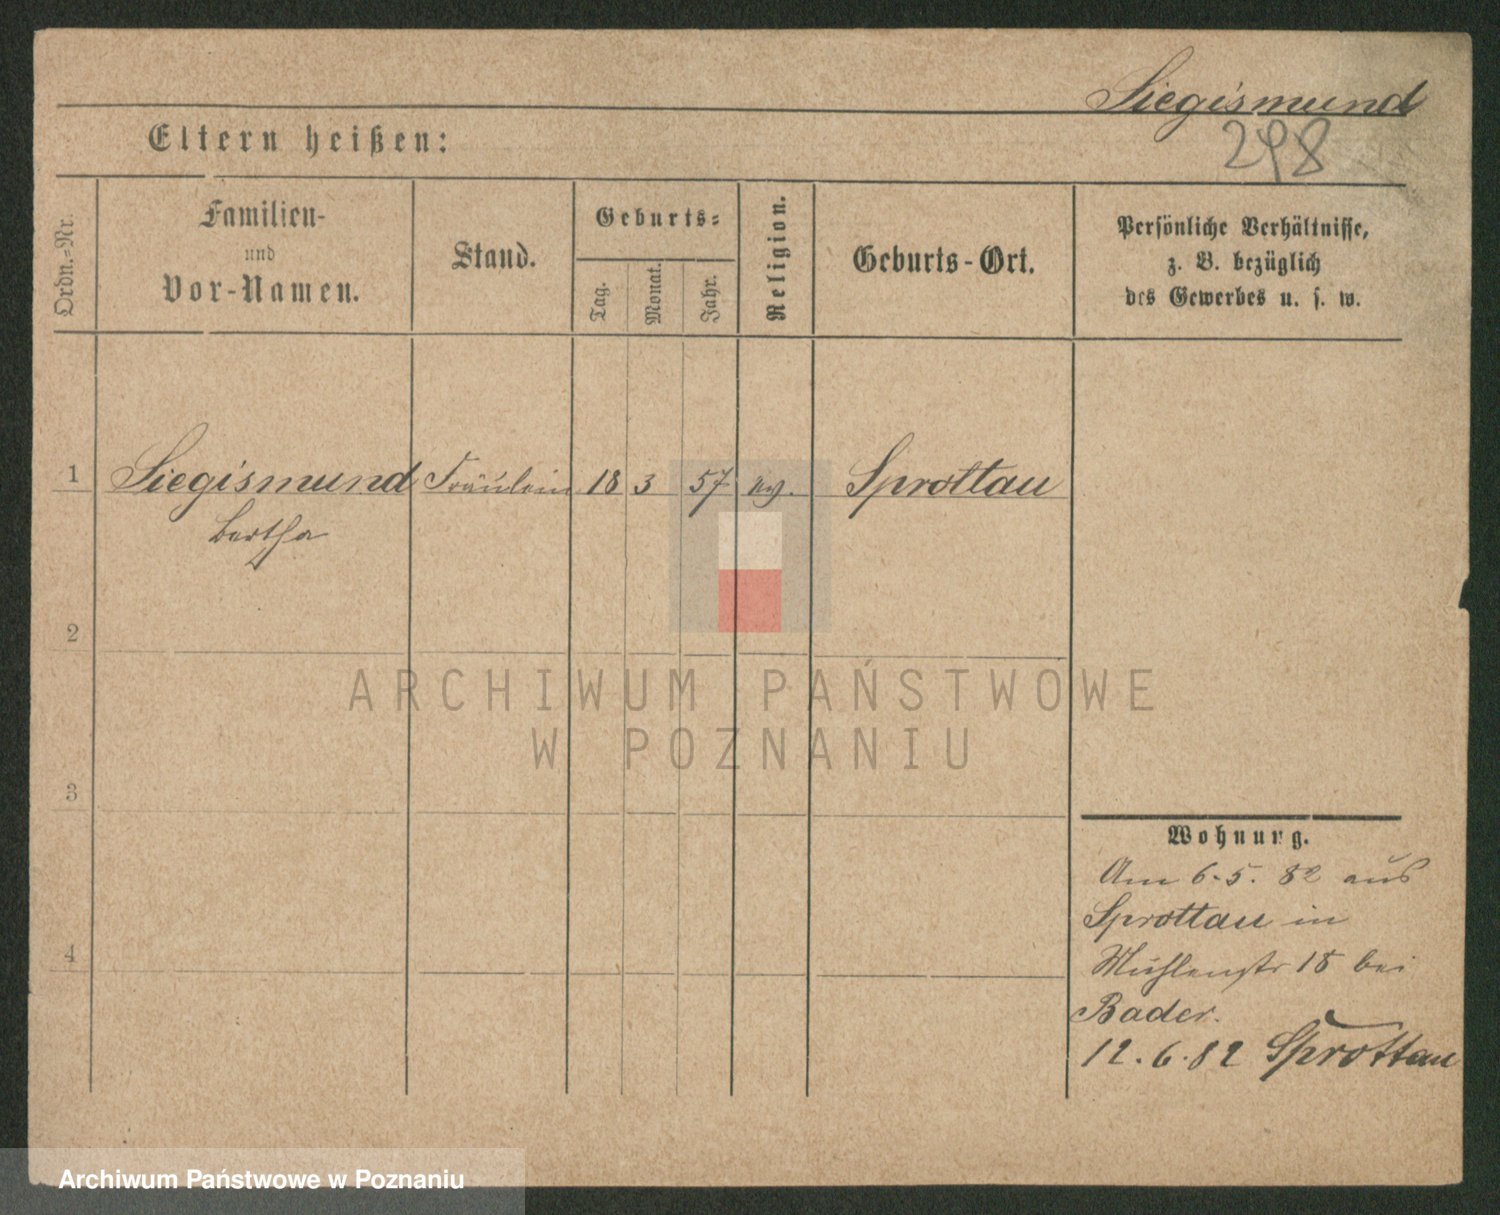 Siegismund
298
Eltern heißen:
Ordn.-Nr.
Familien-
und
Vor-Namen.
Stand.
Geburts-
Tag.
Monat.
Jahr.
Religion.
Geburts-Ort.
Persönliche Verhältnisse,
z. B. bezüglich
des Gewerbes u. s. w.
1 Siegismund Fräulein 18 3 57 ev. Sprottau
Bertha
2
3
4
Wohnung.
Am 6.5.82 aus
Sprottau in
Mühlenstr 18 bei
Bader.
12.6.82 Sprottau
ARCHIWUM PAŃSTWOWE
W POZNANIU
Archiwum Państwowe w Poznaniu